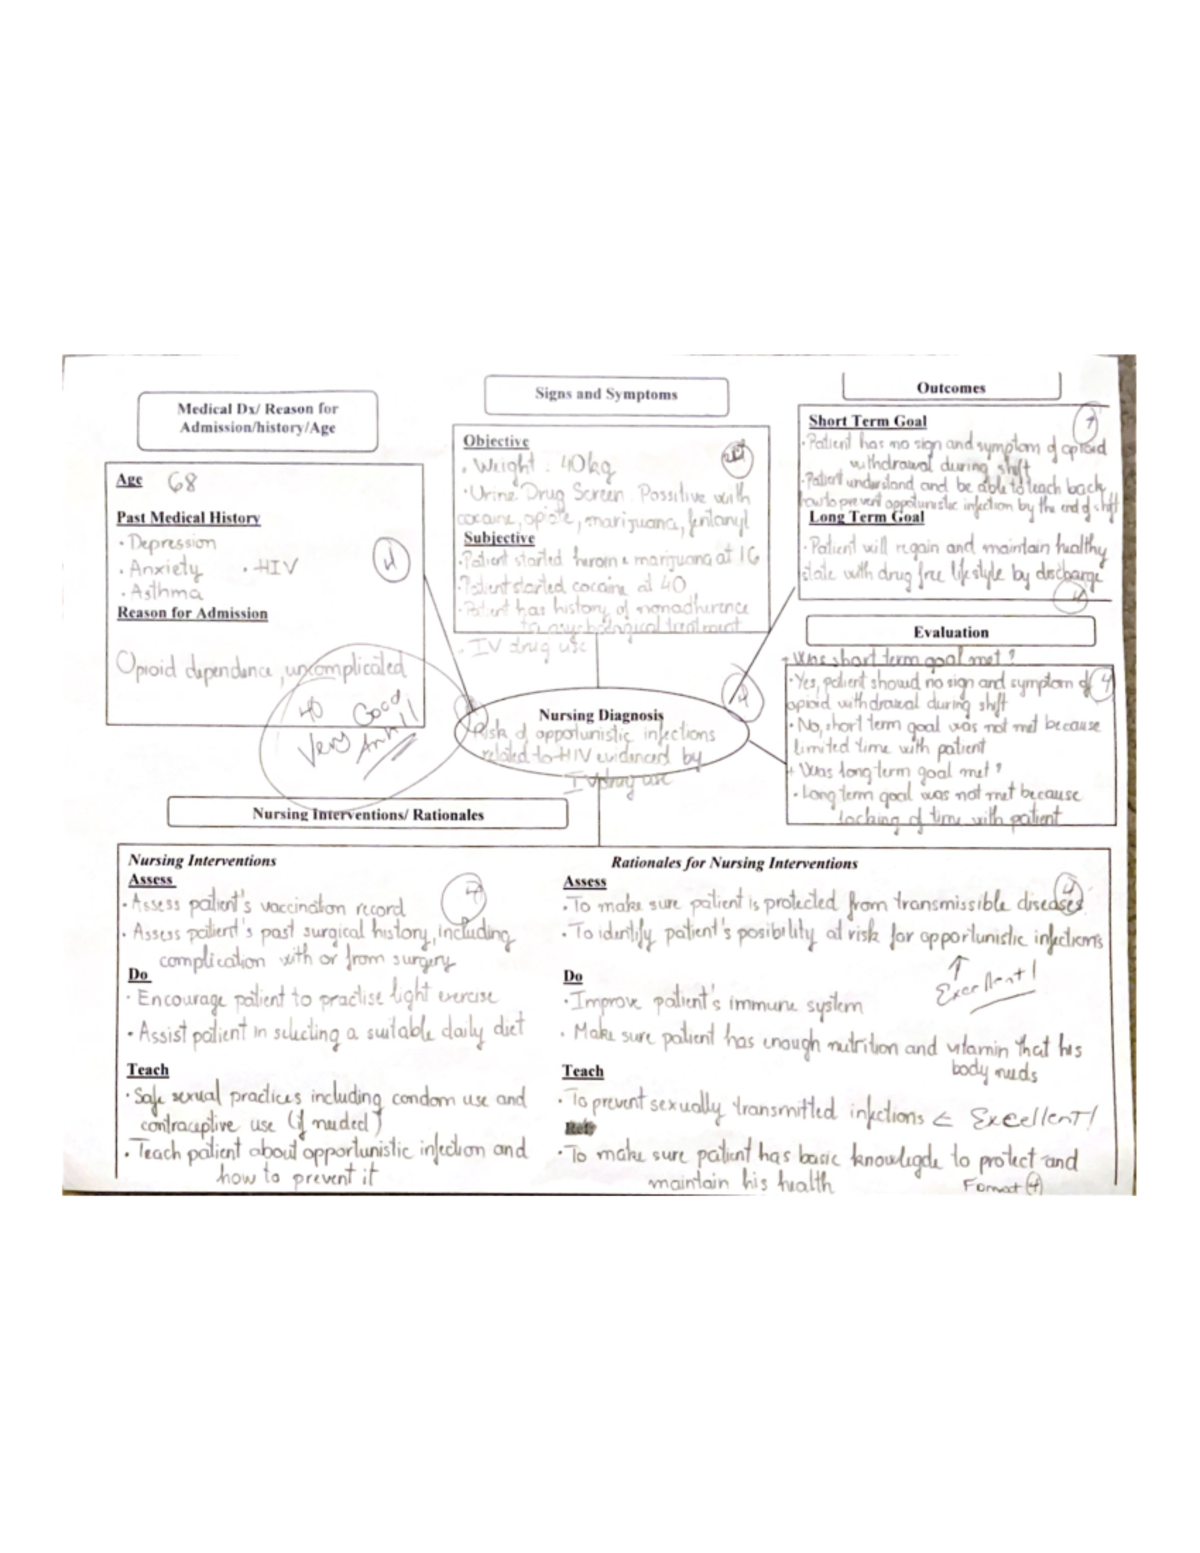 Medical Dx/ Reason for
Admission/history/Age
Age 68
Past Medical History
· Depression
· Anxiety · HIV
· Asthma
Reason for Admission
Opioid dependence, uncomplicated
40
Very Good
Anh!!
Signs and Symptoms
Objective
· Weight : 40kg
· Urine Drug Screen. Possitive with
cocaine, opiate, marijuana, fentanyl
Subjective
· Patient started heroin & marijuana at 16
· Patient started cocaine at 40
· Patient has history of nonadherence
to psychological treatment
· IV drug use
Nursing Diagnosis
Risk of oppotunistic infections
related to HIV evidenced by
IV drug use
Outcomes
Short Term Goal
· Patient has no sign and symptom of opioid
withdrawal during shift
· Patient understand and be able to teach back
how to prevent oppotunistic infection by the end of shift
Long Term Goal
· Patient will regain and maintain healthy
state with drug free lifestyle by discharge
4
Evaluation
+ Was short term goal met ?
· Yes, patient showed no sign and symptom of
opioid withdrawal during shift
· No, short term goal was not met because
limited time with patient
+ Was long term goal met ?
· Long term goal was not met because
lacking of time with patient
Nursing Interventions/ Rationales
Nursing Interventions
Assess
· Assess patient's vaccination record
· Assess patient's past surgical history, including
complication with or from surgery
Do
· Encourage patient to practise light exercise
· Assist patient in selecting a suitable daily diet
Teach
· Safe sexual practices including condom use and
contraceptive use (if needed)
· Teach patient about opportunistic infection and
how to prevent it
Rationales for Nursing Interventions
Assess
4
· To make sure patient is protected from transmissible diseases
· To identify patient's posibility at risk for opportunistic infections
↑
Excellent!
Do
· Improve patient's immune system
· Make sure patient has enough nutrition and vitamin that his
body needs
Teach
· To prevent sexually transmitted infections ← Excellent!
· To make sure patient has basic knowlegde to protect and
maintain his health
Format 4